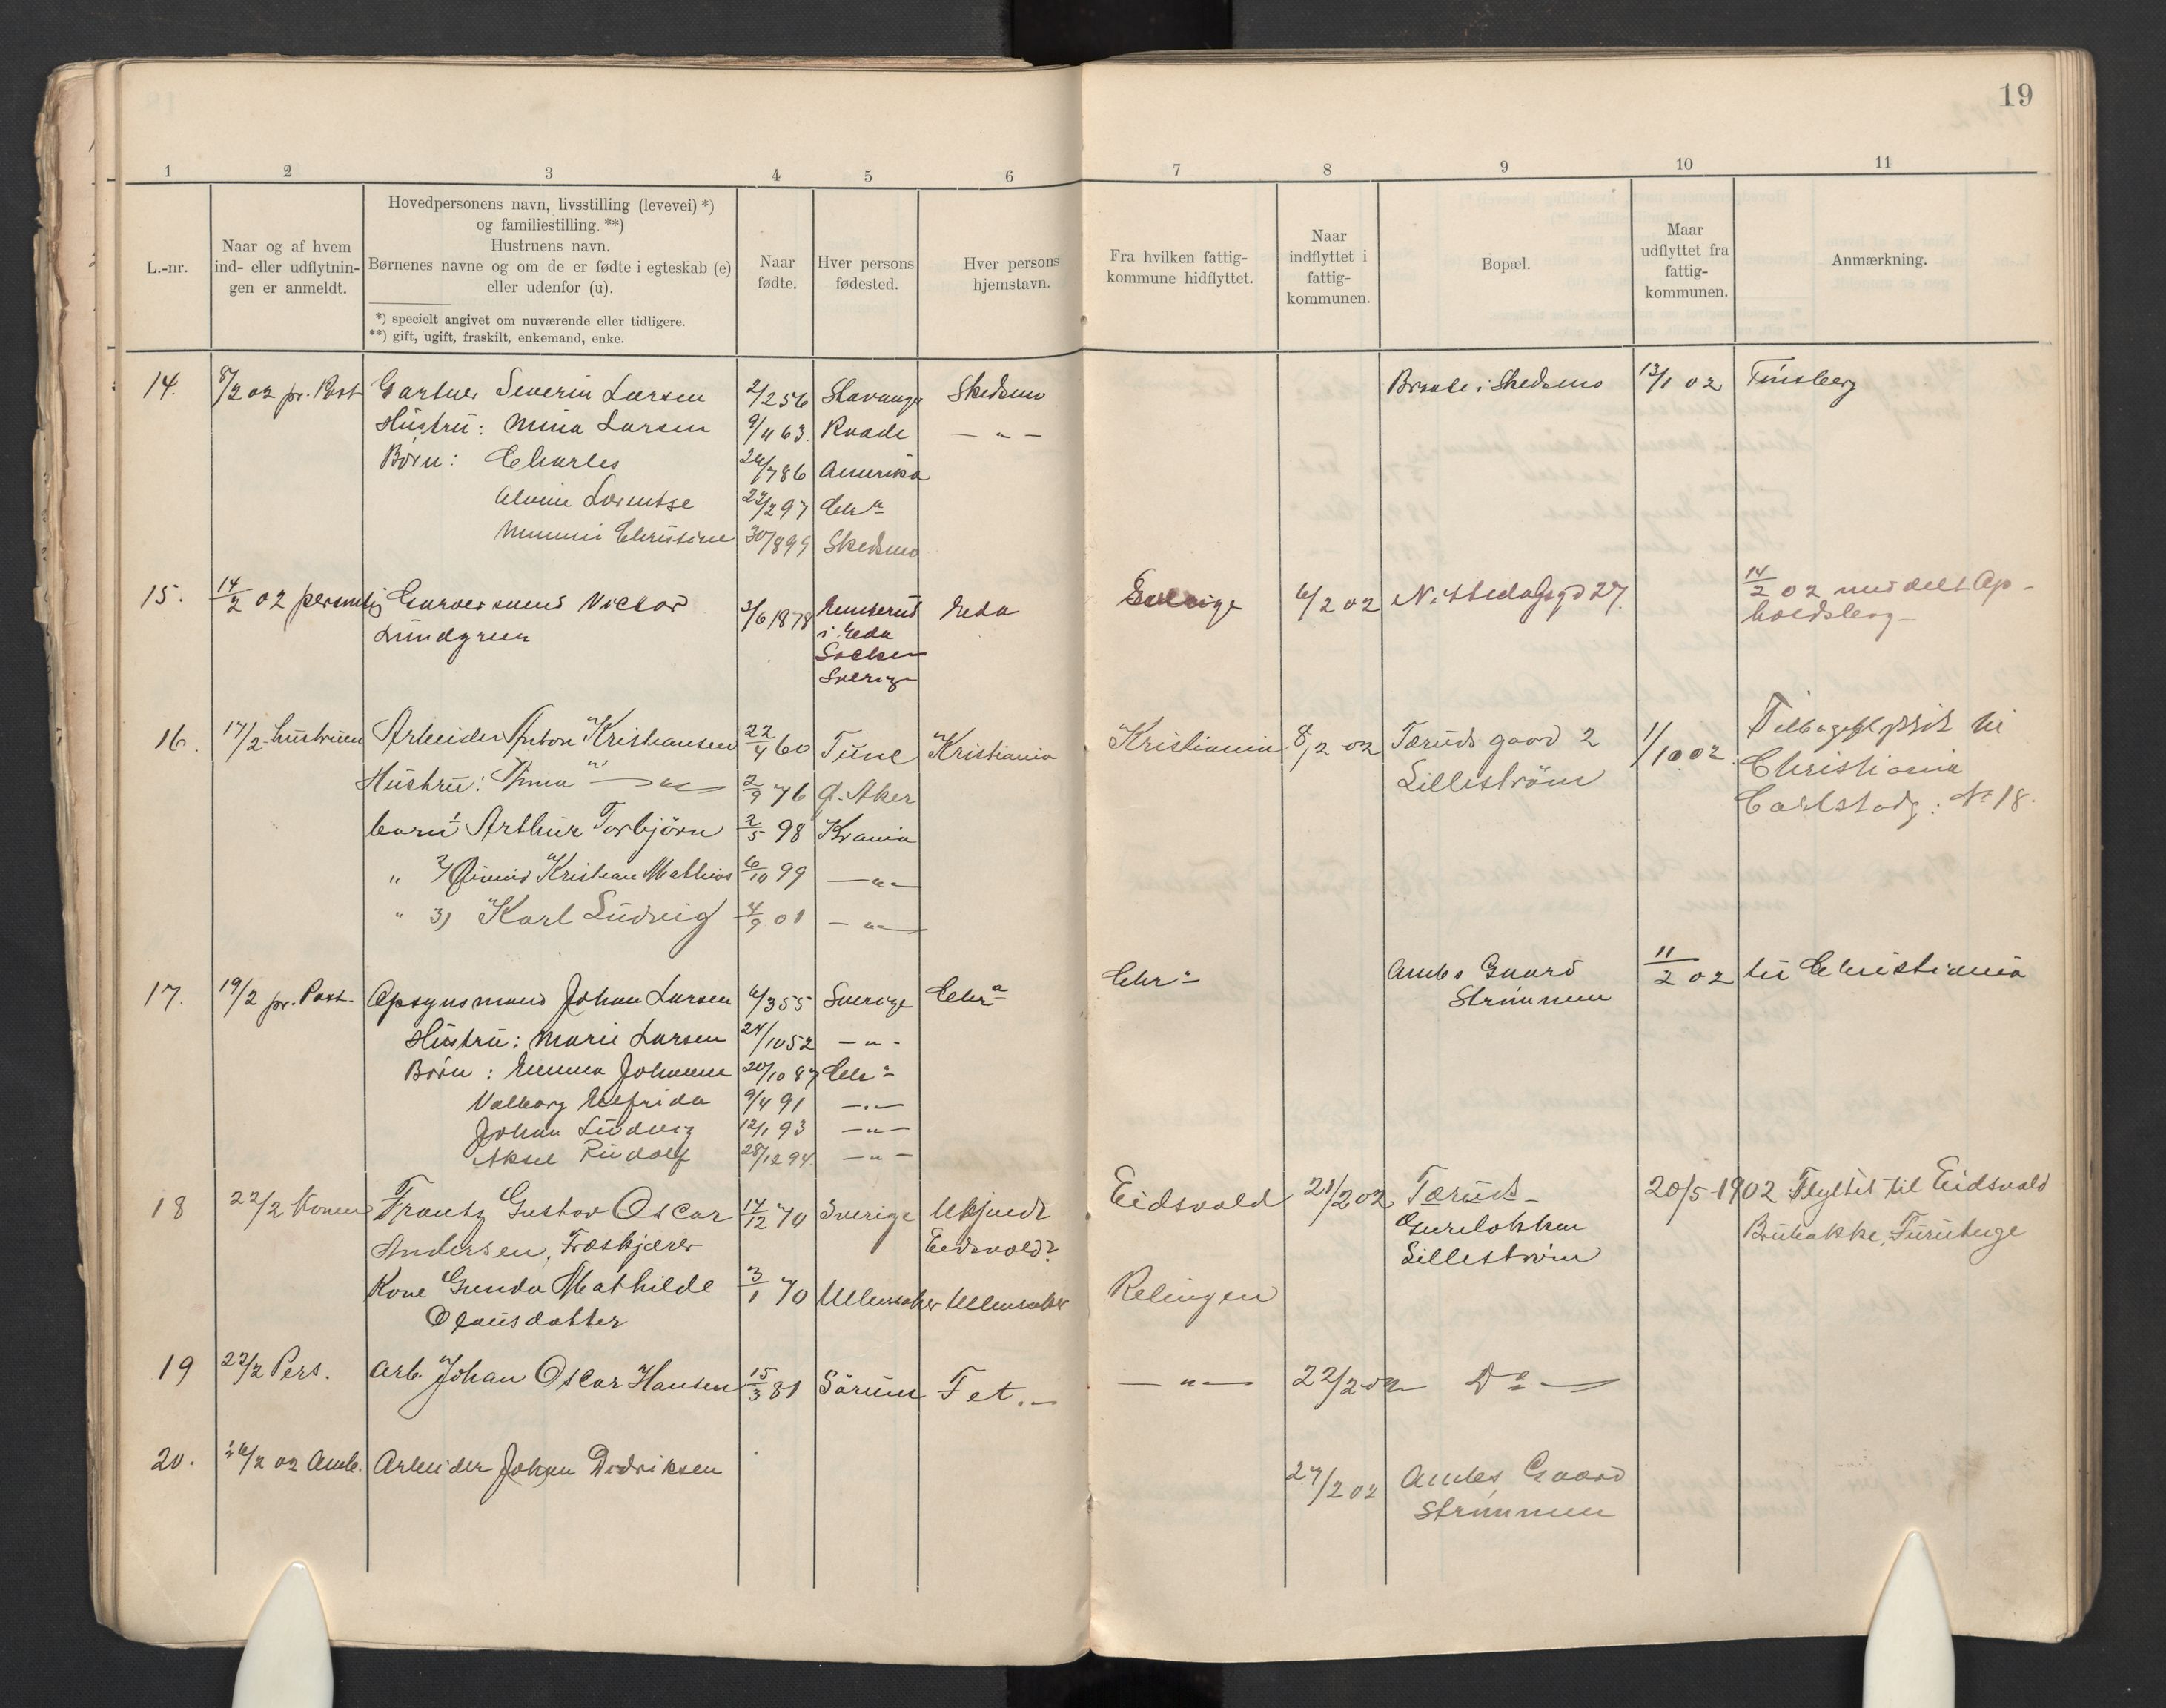 19
1 2 3 4 5 6 7 8 9 10 11
L.-nr.
Naar og af hvem
ind- eller udflytnin-
gen er anmeldt.
Hovedpersonens navn, livsstilling (levevei) *)
og familiestilling. **)
Hustruens navn.
Børnenes navne og om de er fødte i egteskab (e)
eller udenfor (u).
*) specielt angivet om nuværende eller tidligere.
**) gift, ugift, fraskilt, enkemand, enke.
Naar
fødte.
Hver persons
fødested.
Hver persons
hjemstavn.
Fra hvilken fattig-
kommune hidflyttet.
Naar
indflyttet i
fattig-
kommunen.
Bopæl.
Maar
udflyttet fra
fattig-
kommunen.
Anmærkning.
14. 8/2 02 pr. Post Gartner Severin Larsen 2/2 56 Stavange Skedsmo Braate i Skedsmo 13/1 02 Tünsberg
Hüstrü: Mina Larsen 9/11 63. Raade — " —
Börn: Charles 24/7 86 Amerika
Alvine Lorentse 22/2 97 Chra
Mimmi Christine 30/8 99 Skedsmo
15. 14/2 02 personlig Garversvend Victor 3/6 1878 Eda Sverige 6/2 02 Nittedalsgd 27. 14/2 02 meddelt Op-
Lündgren i Eda holdsbog
Socken
Sverige
16. 17/2 hüstruen Arbeider Anton Kristiansen 22/4 60 Tüne Kristiania Kristiania 8/2 02 Tærüds gaard 2 1/10 02. Tilbageflyttet til
Hüstrü: Anna — " — 2/9 76 Ø. Aker Lilleström Christiania
barn 1 Arthur Torbjörn 2/5 98 Krania Carlstadg: No 18.
" 2) Öivind Kristian Mathias 6/10 99 — " —
" 3) Karl Lüdvig 4/9 01 — " —
17. 19/2 pr. Post. Opsynsmand Johan Larsen 6/3 55 Sverige Chra Chra Ambs Gaard 11/2 02 til Christiania
Hüstrü: Marie Larsen 24/10 52 — " — Strömmen
Börn: Emma Johanne 20/10 87 Chra
Valborg Elfrida 9/4 91 — " —
Johan Lüdvig 12/1 93 — " —
Aksel Rüdolf 28/12 94. — " —
18 22/2 Konen Frantz Gustav Oscar 14/12 70 Sverige Ukjendt Eidsvold 21/2 02 Tærüd 20/5-1902 Flyttet til Eidsvold
Andersen, Træskjærer Eidsvold? Lilleström
Kone Gunda Mathilde 3/1 70 Ullensaker Ullensaker Relingen
Olausdatter
19 22/2 Pers. Arb. Johan Oscar Hansen 15/3 81 Sörüm Fet. — " — 22/2 02 Do —
20. 26/2 02 Amb. Arbeider Johan Didriksen 27/2 02 Ambs Gaard
Strömmen